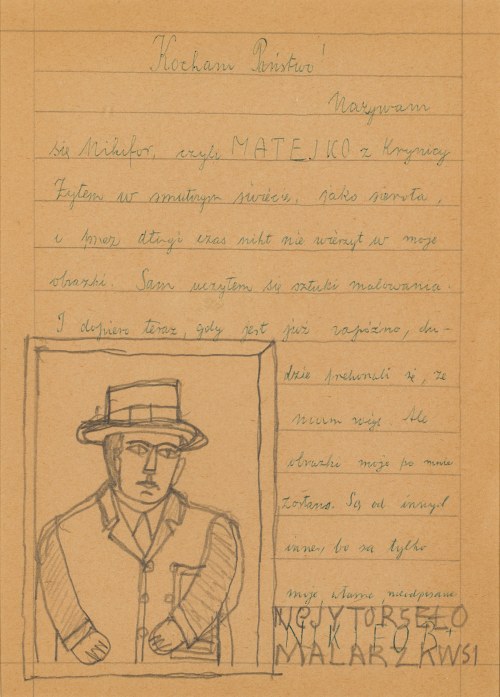 Kocham Państwo!
Nazywam
się Nikifor, czyli MATEJKO z Krynicy
Żyłem w smutnym świecie, jako sierota,
i przez długi czas nikt nie wierzył w moje
obrazki. Sam uczyłem się sztuki malowania.
I dopiero teraz, gdy jest już zapóźno, lu-
dzie prekonali się, że
miałem rację. Ale
obrazki moje po mnie
zostaną. Są od innych
inne, bo są tylko
moje, własne, nieodpisane
NIKIFOR
MALARZ KWSI